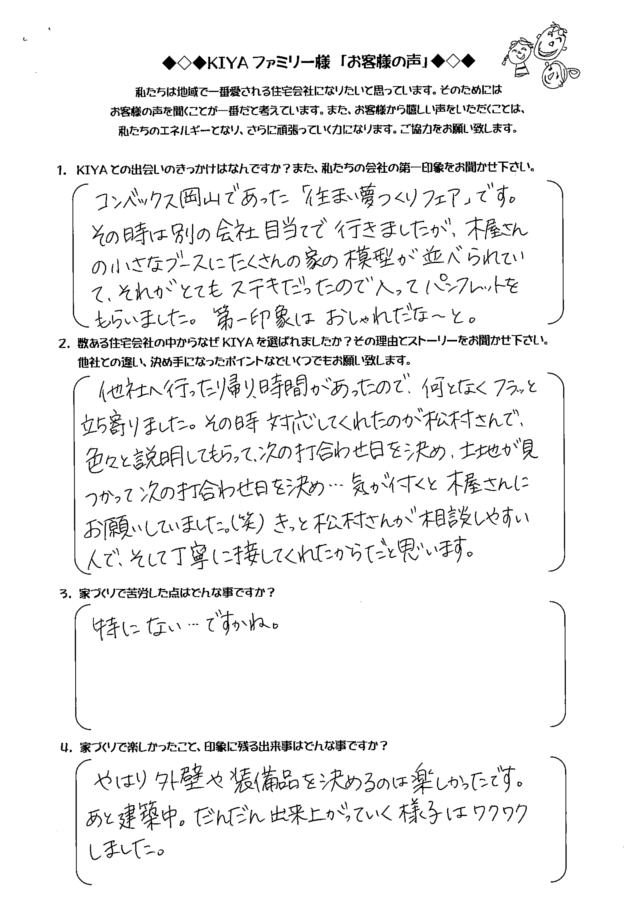 ◆◇◆KIYAファミリー様「お客様の声」◆◇◆
私たちは地域で一番愛される住宅会社になりたいと思っています。そのためには
お客様の声を聞くことが一番だと考えています。また、お客様から嬉しい声をいただくことは、
私たちのエネルギーとなり、さらに頑張っていく力になります。ご協力をお願い致します。
1. KIYAとの出会いのきっかけはなんですか？また、私たちの会社の第一印象をお聞かせ下さい。
コンベックス岡山であった「住まい夢つくりフェア」です。
その時は別の会社目当てで行きましたが、木屋さん
の小さなブースにたくさんの家の模型が並べられてい
て、それがとてもステキだったので入ってパンフレットを
もらいました。第一印象はおしゃれだな〜と。
2. 数ある住宅会社の中からなぜKIYAを選ばれましたか？その理由とストーリーをお聞かせ下さい。
他社との違い、決め手になったポイントなどいくつでもお願い致します。
他社へ行ったり帰り、時間があったので、何となくフラッと
立ち寄りました。その時対応してくれたのが松村さんで、
色々と説明してもらって、次の打合わせ日を決め、土地が見
つかって次の打合わせ日を決め…気が付くと木屋さんに
お願いしていました。(笑) きっと松村さんが相談しやすい
人で、そして丁寧に接してくれたからだと思います。
3. 家づくりで苦労した点はどんな事ですか？
特にない…ですかね。
4. 家づくりで楽しかったこと、印象に残る出来事はどんな事ですか？
やはり外壁や装備品を決めるのは楽しかったです。
あと建築中。だんだん出来上がっていく様子はワクワク
しました。